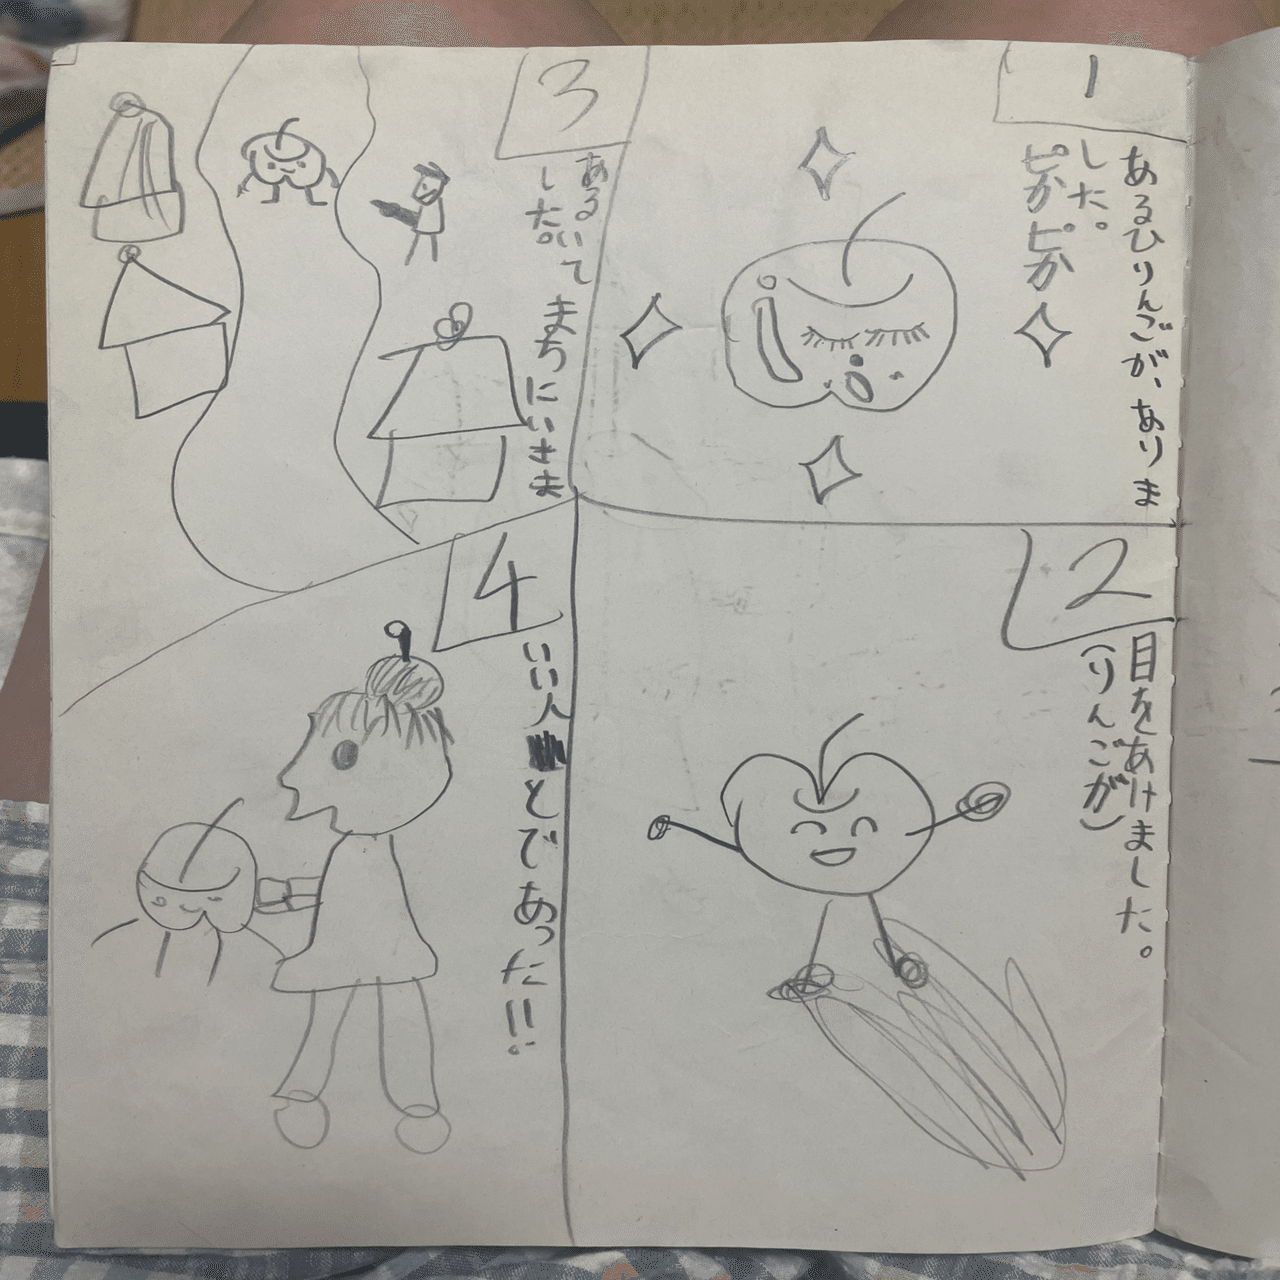 1
あるひりんごが、ありま
した。
ピカピカ
2
目をあけました。
(りんごが)
3
あるいてまちにいきま
した。
4
いい人とであった!!